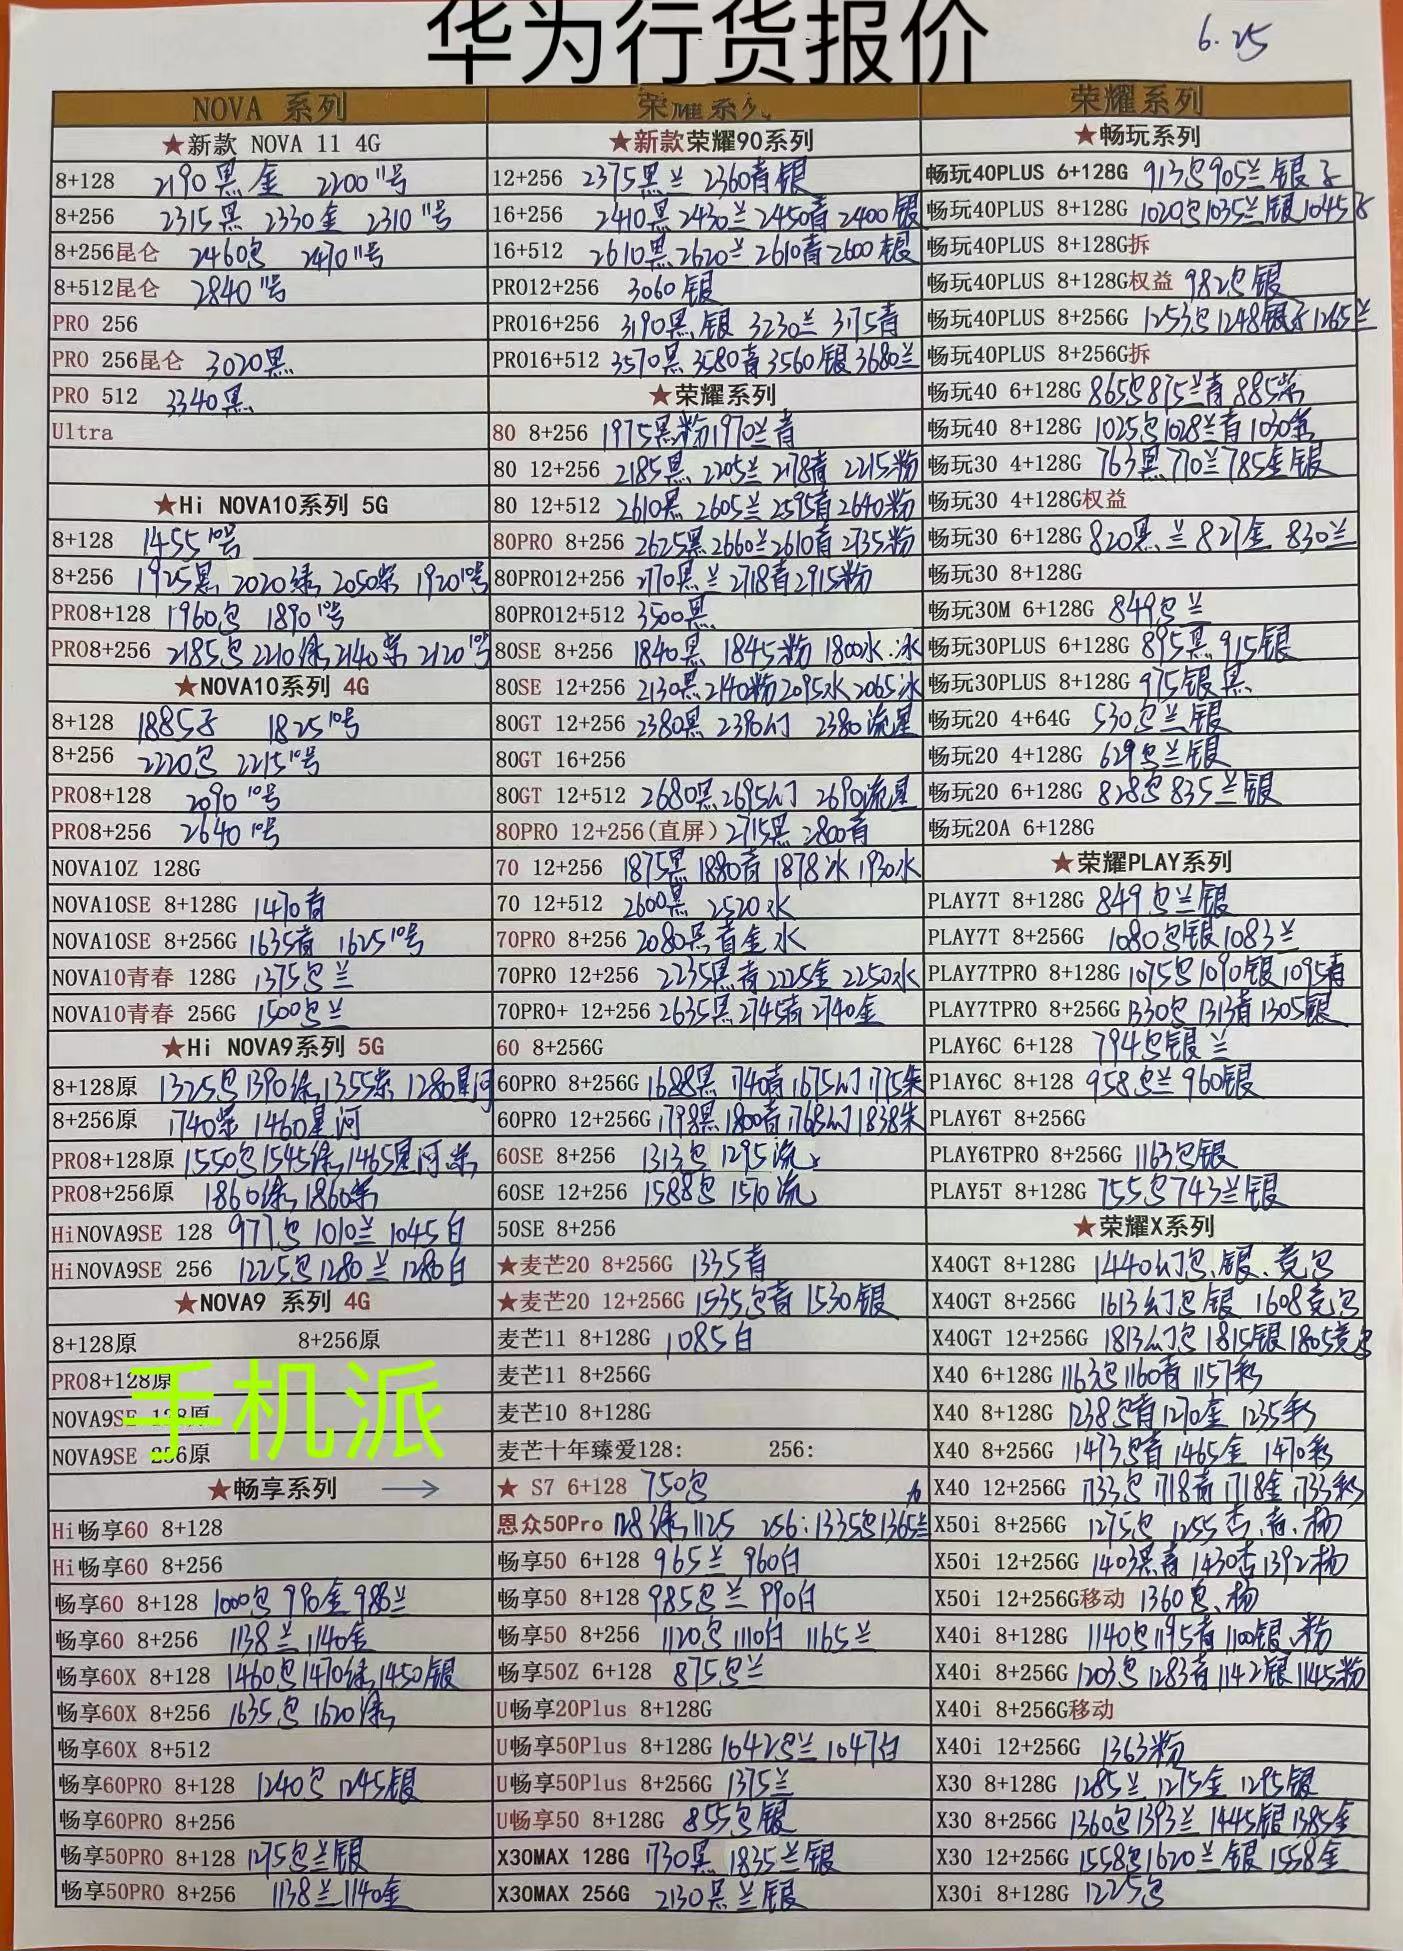 华为行货报价
6.25
NOVA 系列
★新款 NOVA 11 4G
8+128 2190黑金 2200 11号
8+256 2315黑 2330金 2310 11号
8+256昆仑 2460包 2470 11号
8+512昆仑 2840 11号
PRO 256
PRO 256昆仑 3020黑
PRO 512 3340黑
Ultra
★Hi NOVA10系列 5G
8+128 1455 10号
8+256 1925黑 2020绿 2050紫 1920 10号
PRO8+128 1960包 1890 10号
PRO8+256 2185包 2210绿 2140紫 2120 10号
★NOVA10系列 4G
8+128 1885子 1825 10号
8+256 2220包 2215 10号
PRO8+128 2090 10号
PRO8+256 2640 10号
NOVA10Z 128G
NOVA10SE 8+128G 1470青
NOVA10SE 8+256G 1635青 1625 10号
NOVA10青春 128G 1375包兰
NOVA10青春 256G 1500包兰
★Hi NOVA9系列 5G
8+128原 1325包 1390绿 1355紫 1280星河
8+256原 1740紫 1460星河
PRO8+128原 1550包 1545绿 1465星河紫
PRO8+256原 1860绿 1860紫
HiNOVA9SE 128 977包 1010兰 1045白
HiNOVA9SE 256 1225包 1280兰 1280白
★NOVA9 系列 4G
8+128原 8+256原
PRO8+128原
NOVA9SE 128原
NOVA9SE 256原
手机派
★畅享系列 →
Hi畅享60 8+128
Hi畅享60 8+256
畅享60 8+128 1000包 990金 986兰
畅享60 8+256 1138兰 1140金
畅享60X 8+128 1460包 1470绿 1450银
畅享60X 8+256 1635包 1620绿
畅享60X 8+512
畅享60PRO 8+128 1240包 1245银
畅享60PRO 8+256
畅享50PRO 8+128 1295包兰银
畅享50PRO 8+256 1138兰 1140金
荣耀系列
★新款荣耀90系列
12+256 2375黑兰 2360青银
16+256 2410黑 2430兰 2450青 2400银
16+512 2610黑 2620兰 2610青 2600银
PRO12+256 3060银
PRO16+256 3190黑银 3230兰 3175青
PRO16+512 3570黑 3580青 3560银 3680兰
★荣耀系列
80 8+256 1975黑粉 1970兰青
80 12+256 2185黑 2205兰 2178青 2215粉
80 12+512 2610黑 2605兰 2595青 2640粉
80PRO 8+256 2625黑 2660兰 2610青 2735粉
80PRO12+256 2770黑兰 2718青 2915粉
80PRO12+512 3500黑
80SE 8+256 1840黑 1845粉 1800水.冰
80SE 12+256 2130黑 2140粉 2095水 2065冰
80GT 12+256 2380黑 2390幻 2380流星
80GT 16+256
80GT 12+512 2680黑 2695幻 2690流星
80PRO 12+256(直屏) 2715黑 2800青
70 12+256 1875黑 1880青 1878冰 1930水
70 12+512 2600黑 2520水
70PRO 8+256 2080黑青金水
70PRO 12+256 2235黑青 2225金 2250水
70PRO+ 12+256 2635黑 2745青 2740金
60 8+256G
60PRO 8+256G 1688黑 1740青 1675幻 1775朱
60PRO 12+256G 1798黑 1800青 1768幻 1838朱
60SE 8+256 1313包 1295流
60SE 12+256 1588包 1570流
50SE 8+256
★麦芒20 8+256G 1335青
★麦芒20 12+256G 1535包青 1530银
麦芒11 8+128G 1085白
麦芒11 8+256G
麦芒10 8+128G
麦芒十年臻爱128: 256:
★ S7 6+128 750包
恩众50Pro 1128绿 1125 256:1335包 1365兰
畅享50 6+128 965兰 960白
畅享50 8+128 985包兰 990白
畅享50 8+256 1120包 1110白 1165兰
畅享50Z 6+128 875包兰
U畅享20Plus 8+128G
U畅享50Plus 8+128G 1042包兰 1047白
U畅享50Plus 8+256G 1375兰
U畅享50 8+128G 855包银
X30MAX 128G 1730黑 1835兰银
X30MAX 256G 2130黑兰银
荣耀系列
★畅玩系列
畅玩40PLUS 6+128G 913包 905兰银子
畅玩40PLUS 8+128G 1020包 1035兰银 1045
畅玩40PLUS 8+128G拆
畅玩40PLUS 8+128G权益 982包银
畅玩40PLUS 8+256G 1253包 1248银子 1265兰
畅玩40PLUS 8+256G拆
畅玩40 6+128G 865包 875兰青 885紫
畅玩40 8+128G 1025包 1028兰青 1030紫
畅玩30 4+128G 763黑 770兰 785金银
畅玩30 4+128G权益
畅玩30 6+128G 820黑兰 827金 830兰
畅玩30 8+128G
畅玩30M 6+128G 849包兰
畅玩30PLUS 6+128G 895黑 915银
畅玩30PLUS 8+128G 975银黑
畅玩20 4+64G 530包兰银
畅玩20 4+128G 629包兰银
畅玩20 6+128G 828包 835兰银
畅玩20A 6+128G
★荣耀PLAY系列
PLAY7T 8+128G 849包兰银
PLAY7T 8+256G 1080包银 1083兰
PLAY7TPRO 8+128G 1075包 1090银 1095青
PLAY7TPRO 8+256G 1330包 1313青 1305银
PLAY6C 6+128 794包银兰
PlAY6C 8+128 958包兰 960银
PLAY6T 8+256G
PLAY6TPRO 8+256G 1163包银
PLAY5T 8+128G 755包 743兰银
★荣耀X系列
X40GT 8+128G 1440幻包、银、竞包
X40GT 8+256G 1613幻包银 1608竞包
X40GT 12+256G 1813幻包 1815银 1805竞包
X40 6+128G 1163包 1160青 1157彩
X40 8+128G 1238包青 1270金 1235彩
X40 8+256G 1473包青 1465金 1470彩
X40 12+256G 1733包 1718青 1718金 1733彩
X50i 8+256G 1275包 1255杏、青、杨
X50i 12+256G 1403黑青 1430杏 1392杨
X50i 12+256G移动 1360包、杨
X40i 8+128G 1140包 1195青 1100银、粉
X40i 8+256G 1203包 1283青 1142银 1145粉
X40i 8+256G移动
X40i 12+256G 1363粉
X30 8+128G 1285兰 1275金 1295银
X30 8+256G 1360包 1393兰 1445银 1385金
X30 12+256G 1558包 1620兰银 1558金
X30i 8+128G 1225包